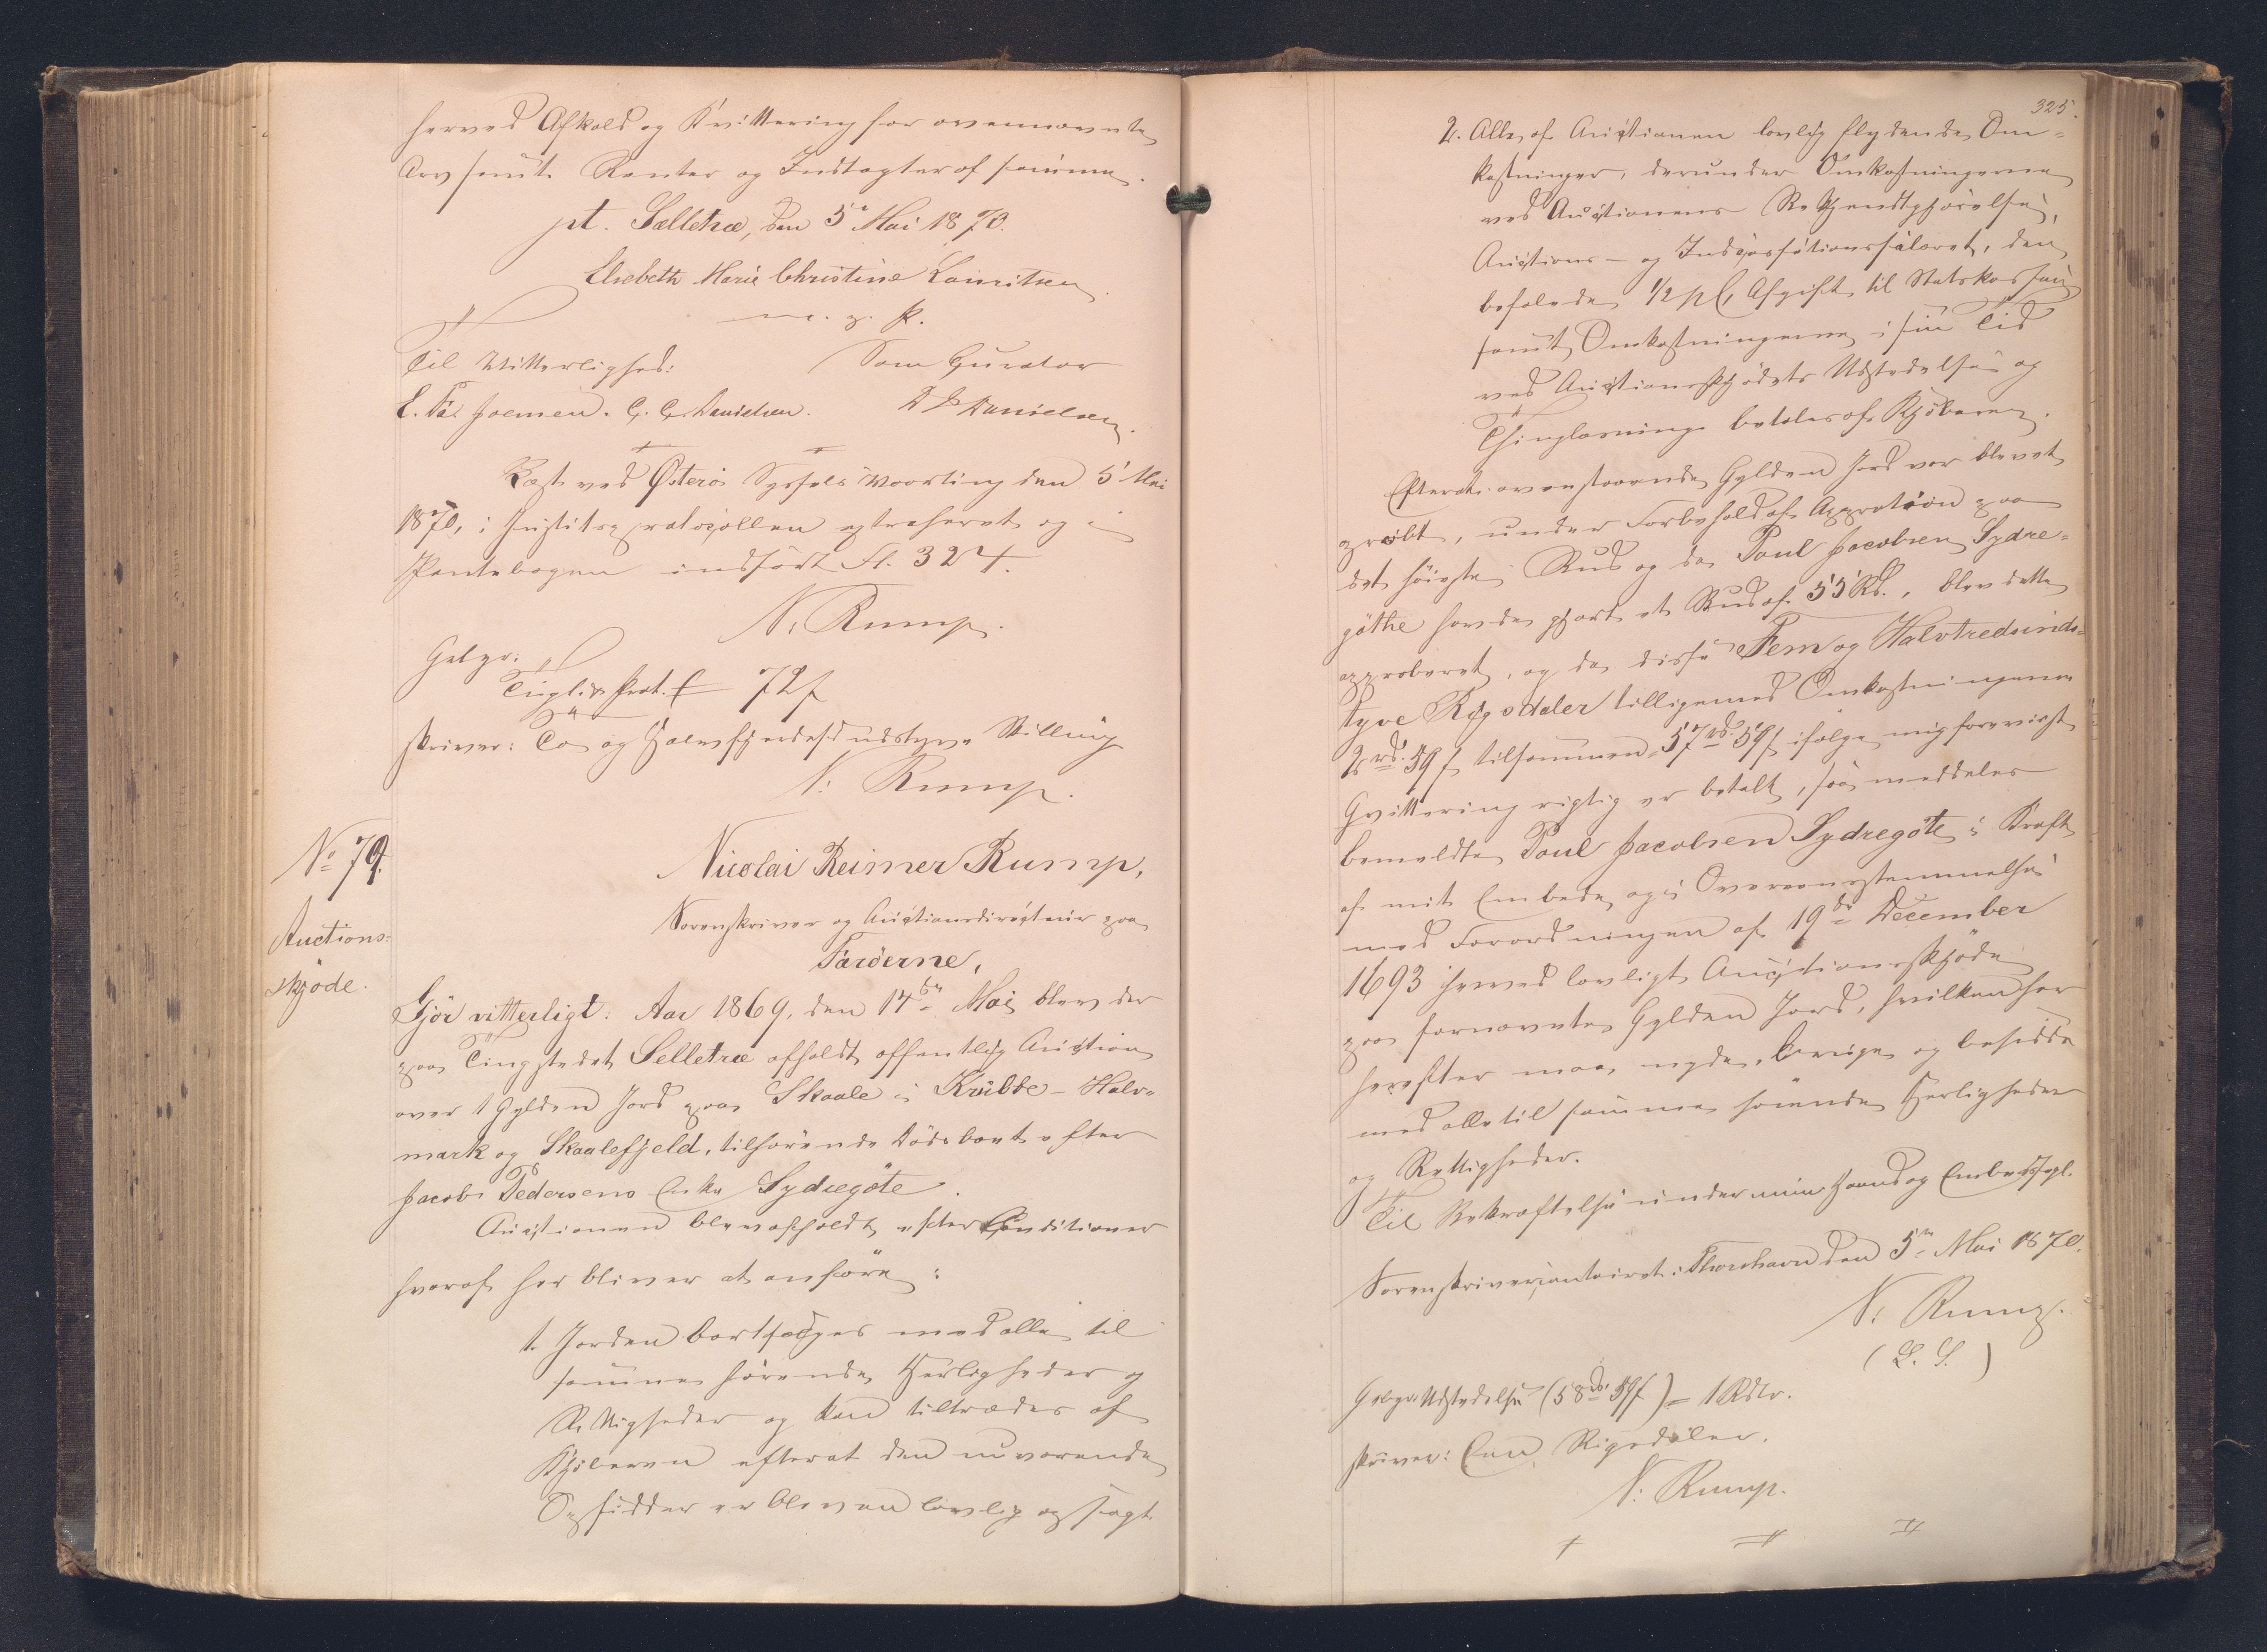 herved Afkald og Kvittering for ovennævnte
Arv samt Renter og Indtægter af samme.
pt. Selletræ, den 5te Mai 1870.
Elsebeth Marie Christine Lauritsen
m. g. P.
Til Vitterlighed: Som Curator
E. Joensen. C. C. Danielsen. D. Danielsen.
Læst ved Østerø Syssels Vaarting den 5' Mai
1870, i Justitsprotocollen extraheret og i
Pantebogen indført Fl. 324.
N. Rump.
Gebyr:
Tinglæsn. & Prot. 72 ß
skriver: To og Halvfjerdesindstyve Skilling
N: Rump.
No 79.
Auctions-
skjøde.
Nicolai Reimer Rump,
Sorenskriver og Auctionsdirecteur paa
Færøerne,
Gjør vitterligt: Aar 1869, den 14de Mai blev der
paa Tingstedet Selletræ afholdt offentlig Auction
over 1 Gylden Jord paa Skaale i Krubbe-Halv-
mark og Skaalefjeld, tilhørende Dødsboet efter
Jacob Pedersens Enke Sydregøte.
Auctionen blev afholdt efter Conditioner
hvoraf her bliver at anføre:
1. Jorden bortsælges med alle til
samme hørende Herligheder og
Rettigheder og kan tiltrædes af
Kjøberen efterat den nuværende
Opsidder er bleven lovlig opsagt
325.
2. Alle af Auctionen lovlig flydende Om-
kostninger, derunder Omkostningerne
ved Auctionens Bekjendtgjørelse,
Auctions- og Incassationssalæret, den
befalede 1/2 pC. Afgift til Statskassen
samt Omkostningerne i sin Tid
ved Auctionsskjødets Udstedelse og
Thinglæsning betales af Kjøberen.
Efterat ovenstaaende Gylden Jord var blevet
opraabt, under Forbehold af Approbation paa
det høieste Bud og da Poul Jacobsen Sydre-
gøthe havde gjort et Bud af 55 Rd., blev dette
approberet, og da disse Fem og Halvtredsinds-
tyve Rigsdaler tilligemed Omkostningerne
2 rd. 59 ß tilsammen 57 rd. 59 ß ifølge mig forevist
Qvittering rigtig er betalt, saa meddeles
bemeldte Poul Jacobsen Sydregøte i Kraft
af mit Embede og i Overeensstemmelse
med Forordningen af 19de December
1693 herved lovligt Auctionsskjøde
paa fornævnte Gylden Jord, hvilken han
herefter maa nyde, bruge og besidde
med alle til samme hørende Herligheder
og Rettigheder.
Til Bekræftelse under min Haand og Embedssegl.
Sorenskrivercontoiret i Thorshavn den 5te Mai 1870.
N: Rump.
(L. S.)
Gebyr: Udstedelse (58 rd. 59 ß) - 1 Rdlr.
skriver: Een Rigsdaler.
N: Rump.